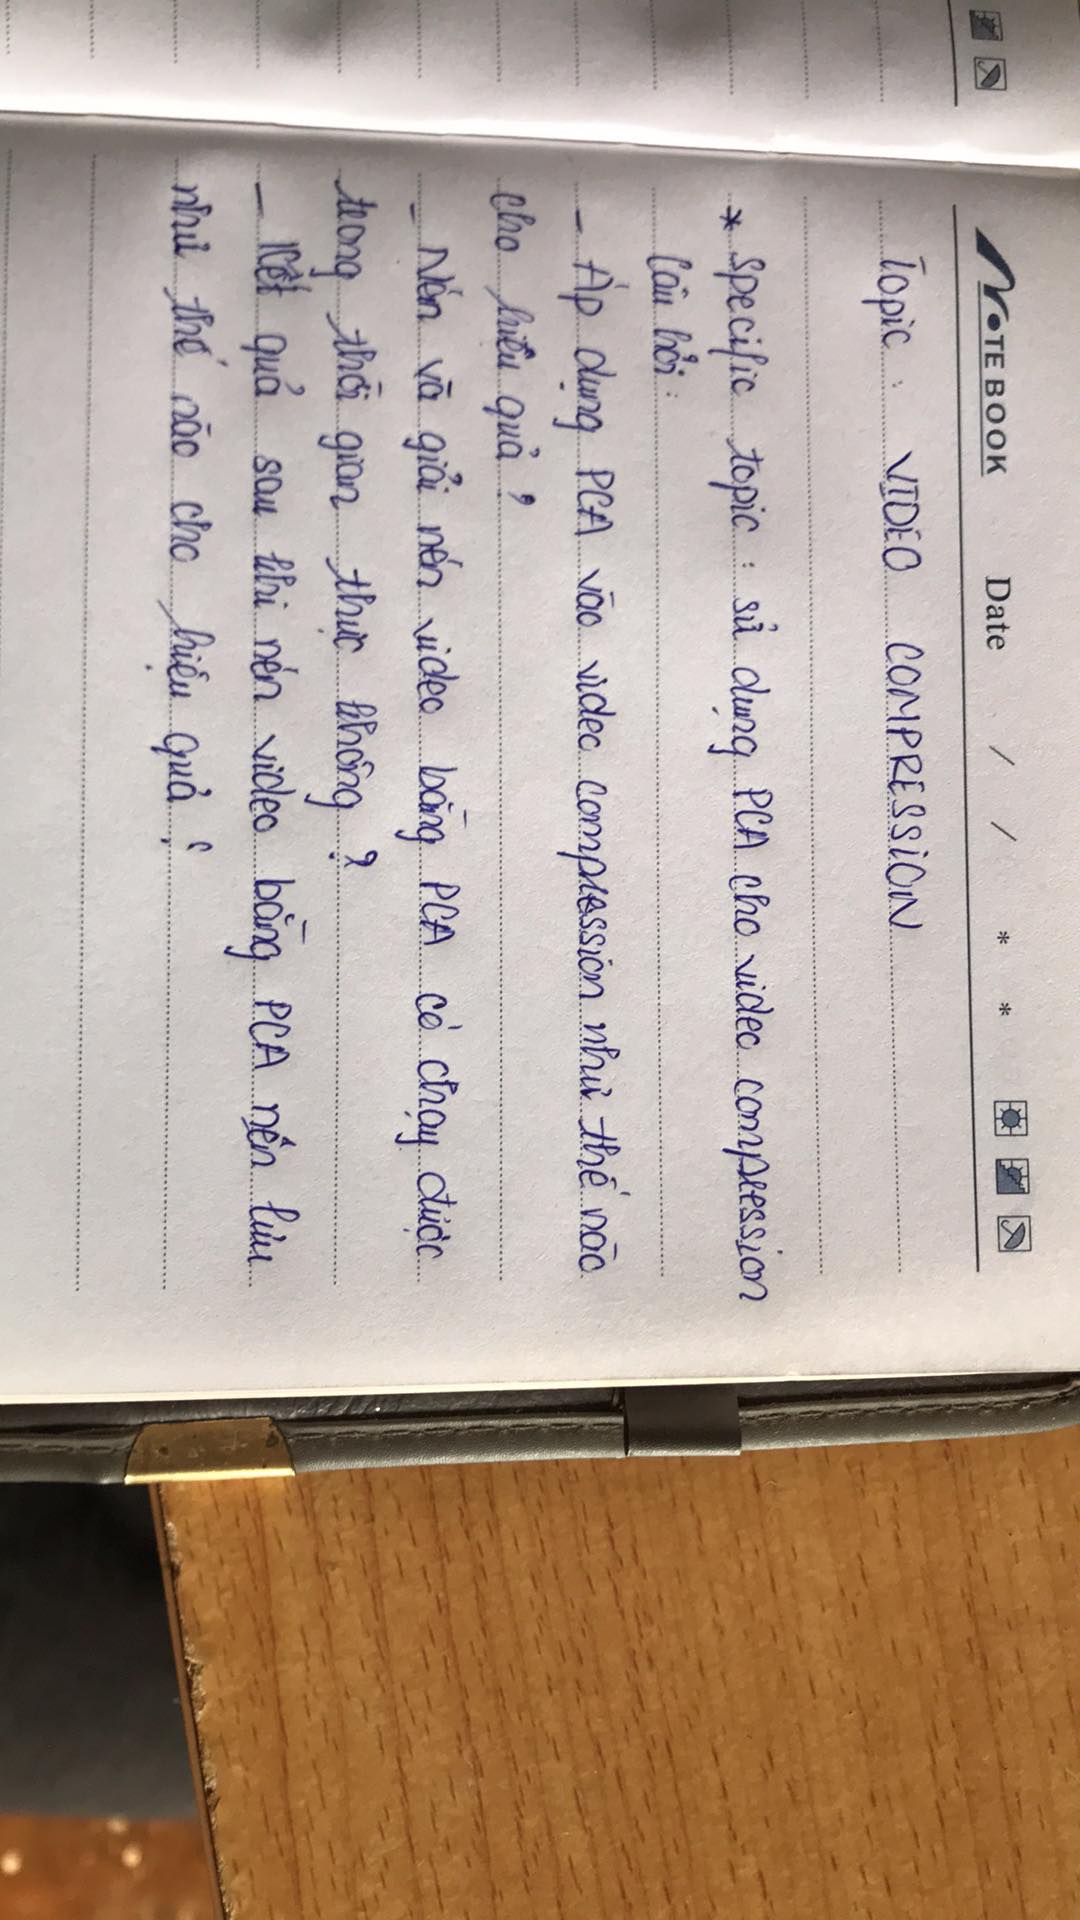 NOTE BOOK Date / / * *
Topic : VIDEO COMPRESSION
* Specific topic : sử dụng PCA cho video compression
Câu hỏi :
- Áp dụng PCA vào video compression như thế nào
cho hiệu quả ?
- Nén và giải nén video bằng PCA có chạy được
trong thời gian thực không ?
- Kết quả sau khi nén video bằng PCA nên lưu
như thế nào cho hiệu quả ?